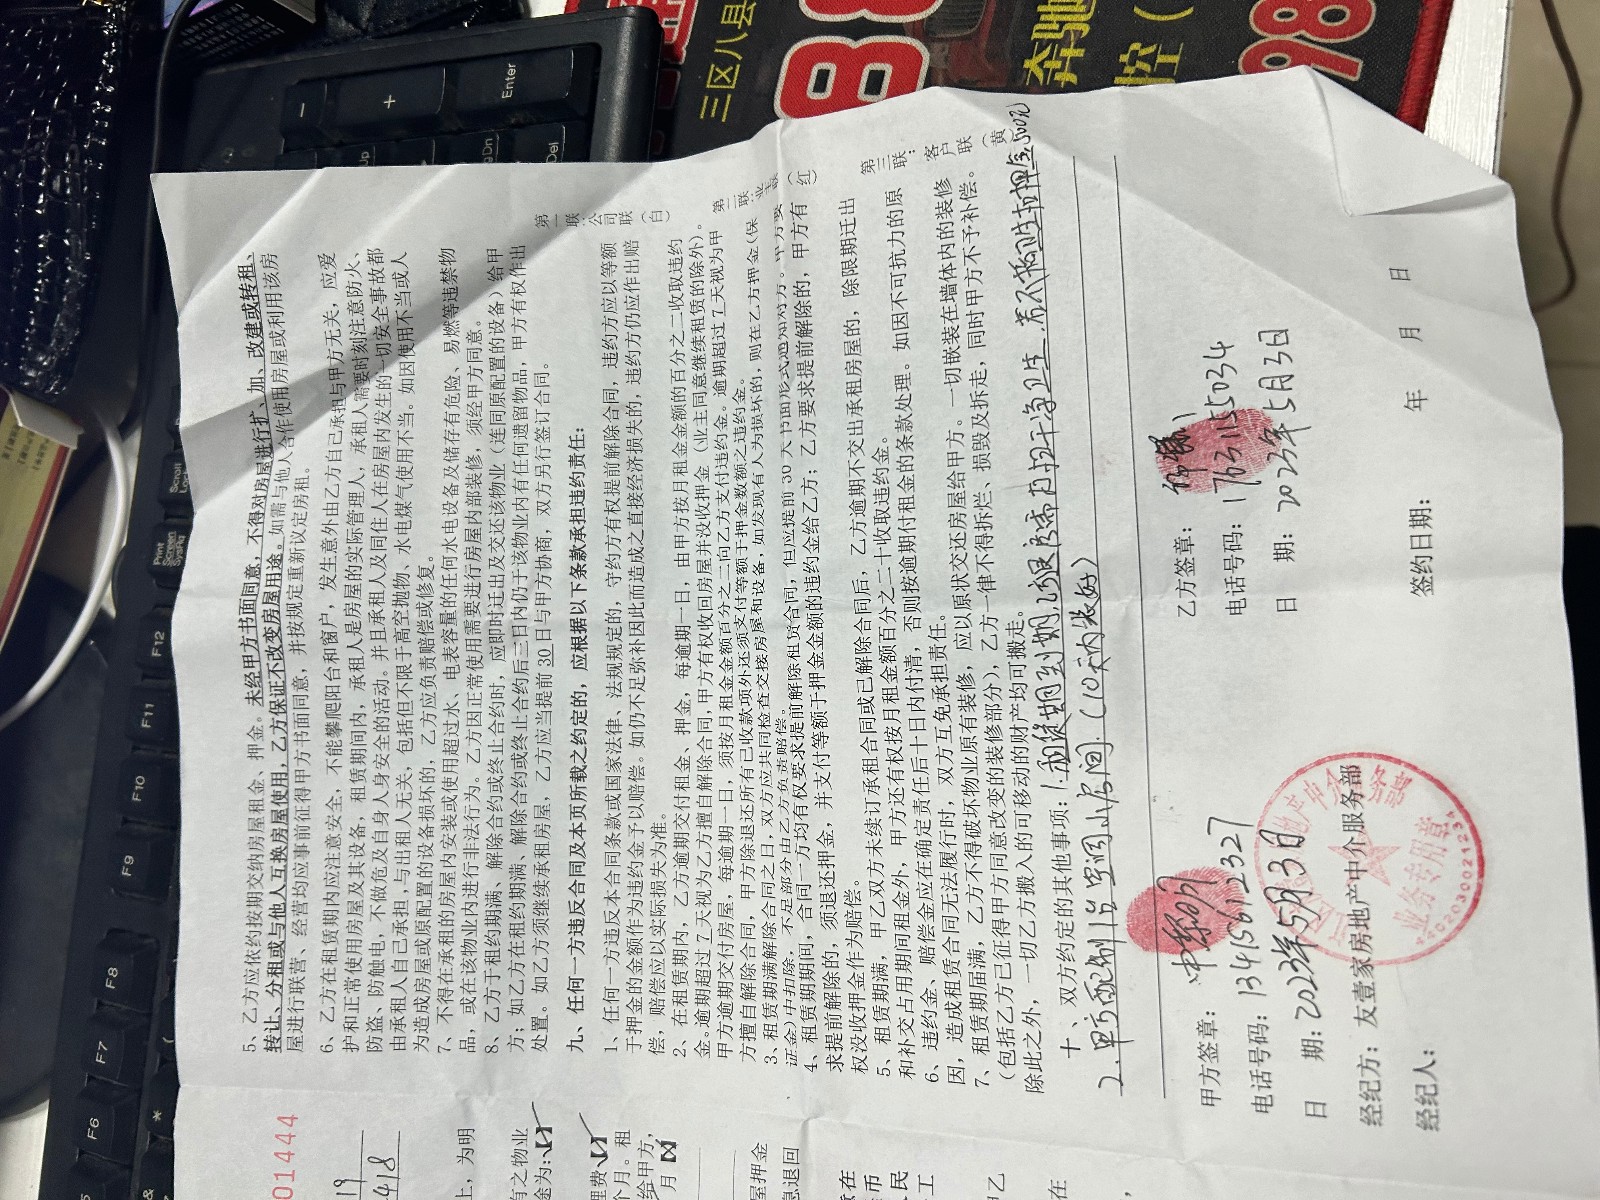 5、乙方应依约按期交纳房屋租金、押金。未经甲方书面同意，不得对房屋进行扩、加、改建或转租、
转让、分租或与他人互换房屋使用，乙方保证不改变房屋用途。如需与他人合作使用房屋或利用该房
屋进行联营、经营均应事前征得甲方书面同意，并按规定重新议定房租。
6、乙方在租赁期内应注意安全，不能攀爬阳台和窗户，发生意外由乙方自己承担与甲方无关，应爱
护和正常使用房屋及其设备，租赁期间内，承租人是房屋的实际管理人，承租人需要时刻注意防火、
防盗、防触电，不做危及自身人身安全的活动。并且承租人及同住人在房屋内发生的一切安全事故都
由承租人自己承担，与出租人无关，包括但不限于高空抛物、水电煤气使用不当。如因使用不当或人
为造成房屋或原配置的设备损坏的，乙方应负责赔偿或修复。
7、不得在承租的房屋内安装或使用超过水、电表容量的任何水电设备及储存有危险、易燃等违禁物
品，或在该物业内进行非法行为。乙方因正常使用需要进行房屋内部装修，须经甲方同意。
8、乙方于租约期满、解除合约或终止合约时，应即时迁出及交还该物业（连同原配置的设备）给甲
方；如乙方在租约期满、解除合约或终止合约后三日内仍于该物业内有任何遗留物品，甲方有权作出
处置。如乙方须继续承租房屋，乙方应当提前30日与甲方协商，双方另行签订合同。
九、任何一方违反合同及本页所载之约定的，应根据以下条款承担违约责任：
1、任何一方违反本合同条款或国家法律、法规规定的，守约方有权提前解除合同，违约方应以等额
于押金的金额作为违约金予以赔偿。如仍不足弥补因此而造成之直接经济损失的，违约方仍应作出赔
偿，赔偿应以实际损失为准。
2、在租赁期内，乙方逾期交付租金、押金，每逾期一日，由甲方按月租金金额的百分之二收取违约
金。逾期超过7天视为乙方擅自解除合同，甲方有权收回房屋并没收押金（业主同意继续租赁的除外）。
甲方逾期交付房屋，每逾期一日，须按月租金金额百分之二向乙方支付违约金。逾期超过7天视为甲
方擅自解除合同，甲方除退还所有已收款项外还须支付等额于押金数额之违约金。
3、租赁期满解除合同之日，双方应共同检查交接房屋和设备，如发现有人为损坏的，则在乙方押金（保
证金）中扣除，不足部分由乙方负责赔偿。
4、租赁期期间，合同一方均有权要求提前解除租赁合同，但应提前30天书面形式通知对方。甲方要
求提前解除的，须退还押金，并支付等额于押金金额的违约金给乙方；乙方要求提前解除的，甲方有
权没收押金作为赔偿。
5、租赁期满，甲乙双方未续订承租合同或已解除合同后，乙方逾期不交出承租房屋的，除限期迁出
和补交占用期间租金外，甲方还有权按月租金额百分之二十收取违约金。
6、违约金、赔偿金应在确定责任后十日内付清，否则按逾期付租金的条款处理。如因不可抗力的原
因，造成租赁合同无法履行时，双方互免承担责任。
7、租赁期届满，乙方不得破坏物业原有装修，应以原状交还房屋给甲方。一切嵌装在墙体内的装修
（包括乙方已征得甲方同意改变的装修部分），乙方一律不得拆烂、损毁及拆走，同时甲方不予补偿。
除此之外，一切乙方搬入的可移动的财产均可搬走。
十、双方约定的其他事项：1.租赁期到期后退房需自扫干净卫生.若不搞卫生扣押金500元
2.甲方配制1台空调小房间.(10天内装好)
甲方签章：
电话号码：134156112327
日 期：2023年5月3日
经纪方：友壹家房地产中介服务部
经纪人：
乙方签章：
电话号码：17631155034
日 期：2023年5月3日
签约日期： 年 月 日
第一联：公司联（白）
第二联：业主联（红）
第三联：客户联（黄）
房地产中介服务部
业务专用章
4420300021234
01444
19
418
上，为明
有之物业
途为:☑
理费☑
个月。租
给甲方，
月☒
屋押金
息退回
意在
币
民
工
甲乙
在
三区八县
88
奔驰
控（
98
Enter
+
−
Up
PgDn
Del
Scroll Lock
Print Screen SysRq
F12
F11
F10
F9
F8
F7
F6
*
&
(